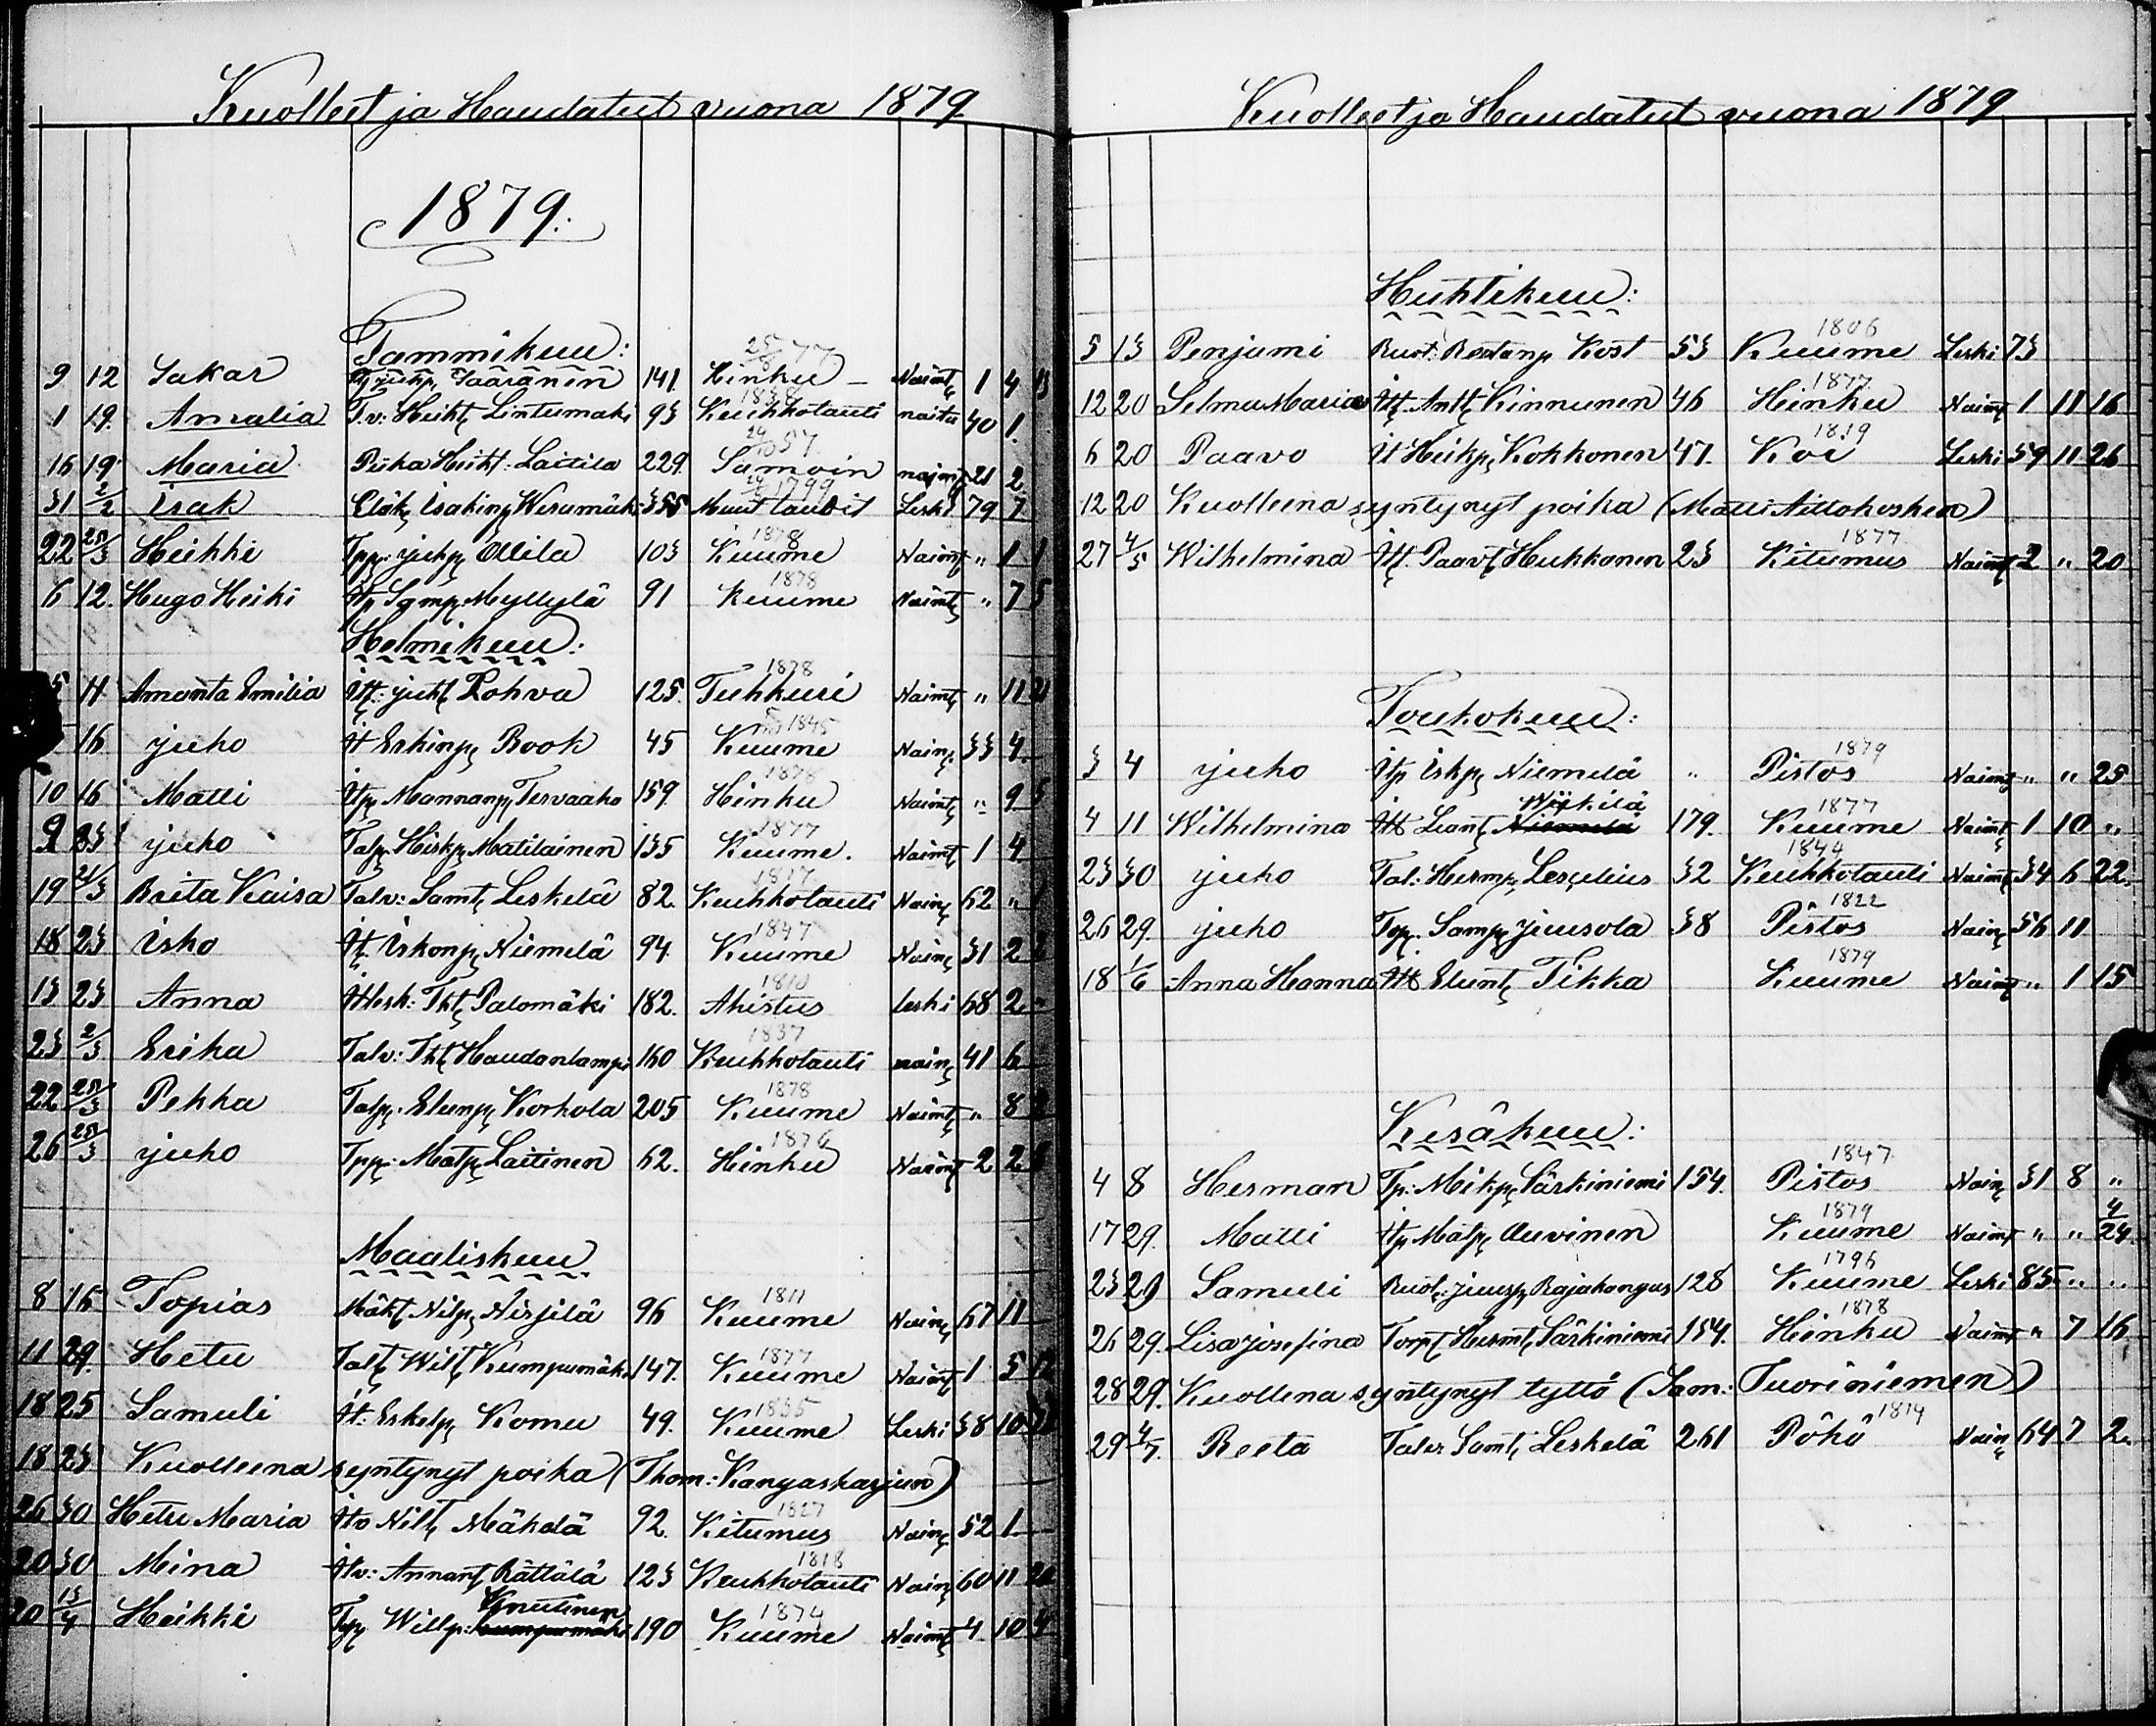 Kuolleet ja Haudatut vuona 1879
1879.
Tammikuu:
25/8 77
9 12 Sakar Tp: juhp. Saaranen 141. Hinku — Naimt. 1 4 13
1838
1 19. Amalia Tv: Heikt. Lintumäki 93 Keuhkotauti naitu 40 1.
57
16 19. Maria Piika Heikt: Laitila 229. Samoin 21 2
1799
31 2/2 Isak Eläk. Isakinp. Wesamäki 355 Muut taudit Leski 79 7
1878
22 25/3 Heikki Tpp: juhp. Ollila 103 Kuume Naimt. " 1 1
1878
6 12. Hugo Heiki Itp. Samp. Myllylä 91 Kuume Naimt. " 7 5
Helmikuu:
1878
5 11 Amanta Emilia Itt: juht. Rohva 125. Tuhkuri Naimt. " 11 21
1845
16 juho It Erkinp. Book 45 Kuume Nain. 33 4
1878
10 16 Matti Itp. Mannanp. Tervaaho 159. Hinku Naimt. " 9 5
1877
9 23 juho Talp. Heikp. Matilainen 135 Kuume. Naimt. 1 4
1817
19 21/3 Brita Kaisa Talv: Samt. Leskelä 82. Keuhkotauti Nain. 62 " 1
1847
18 23 Esko It. Eskonp. Niemelä 94. Kuume Nain. 31 2
1810
13 23 Anna Itlesk: Tht. Palomäki 182. Ahistus leski 68 2 "
1837
23 2/3 Erika Talv: Tht. Haudanlampi 160 Keuhkotauti nain. 41 6
1878
22 25/3 Pekka Talp. Elunp. Korhola 205 Kuume Naimt. " 8 2
1876
26 25/3 juho Tpp: Matp. Laitinen 62. Hinku Naimt. 2 2
Maaliskuu
1811
8 16 Topias Mäkt. Nilp. Nirjilä 96 Kuume Nain. 67 11
1877
11 29. Hetu Talt. Wilt. Kumpumäki 147. Kuume Naimt. 1 5 12
1835
18 25 Samuli It: Erkelp. Komu 49. Kuume Leski 38 10
18 23 Kuolleena syntynyt poika (Thom: Kangasharjun)
1827
26 30 Hetu Maria Itv Nilt. Mäkelä 92. Kitumus Nain. 52 1
1818
20 30 Mina Itv: Annant. Rättälä 123 Keuhkotauti Nain. 60 11 20
1874
20 13/4 Heikki Tpp. Willp: Knuutinen 190 Kuume Naimt. 4 10 4
Kuolleet ja Haudatut vuona 1879
Huhtikuu:
1806
5 13 Penjami Ruot: Rostanp Kost 53 Kuume Leski 73
1877
12 20 Selma Maria Itt. Antt. Kinnunen 46 Hinku Naimt 1 11 16
1819
6 20 Paavo It Heikp. Kokkonen 47. Koi Leski 59 11 26
12 20 Kuolleena syntynyt poika (Matti Aittokosken)
1877
27 4/5 Wilhelmina Itt. Paavt. Hukkanen 23 Kitumus Naimt 2 " 20
Toukokuu:
1879
3 4 juho Itp Eskp. Niemelä " Pistos Naimt " " 25
1877
4 11 Wilhelmina Itt Leant. Wiikilä 179. Kuume Naimt 1 10 "
1844
23 30 juho Tal: Hermp. Lesclius 32 Keuhkotauti Naimt 34 6 22.
1822
26 29. juho Tpp. Samp. juusola 38 Pistos Nain. 56 11
1879
18 1/6 Anna Hanna Itt Elunt. Tikka Kuume Naimt " 1 15
Kesäkuu:
1847
4 8 Herman Tp: Mikp. Särkiniemi 154. Pistos Nain. 31 8 "
1879
17 29. Matti Itp Matp. Auvinen Kuume Naimt " " 4/24
1796
23 29 Samuli Ruot: juusp. Rajakangas 128 Kuume Leski 85 " "
1878
26 29. Lisa josefina Torpt. Hermt. Särkiniemi 154. Hinku Naimt " 7 16
28 29. Kuollena syntynyt tyttö (Sam: Tuoriniemen)
1814
29 4/7. Reeta Talv Samt. Leskelä 261 Pöhö Nain. 64 7 2.